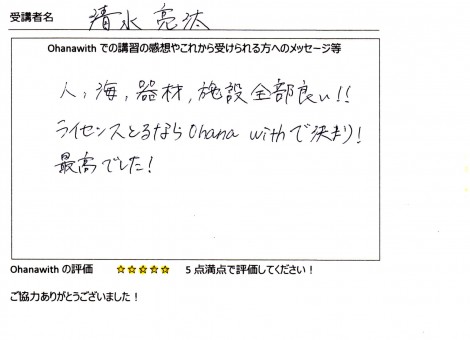 受講者名 清水 亮汰
Ohanawith での講習の感想やこれから受けられる方へのメッセージ等
人, 海, 器材, 施設全部良い!!
ライセンスとるなら Ohana withで決まり!
最高でした!
Ohanawith の評価 ☆☆☆☆☆ 5 点満点で評価してください！
ご協力ありがとうございました！